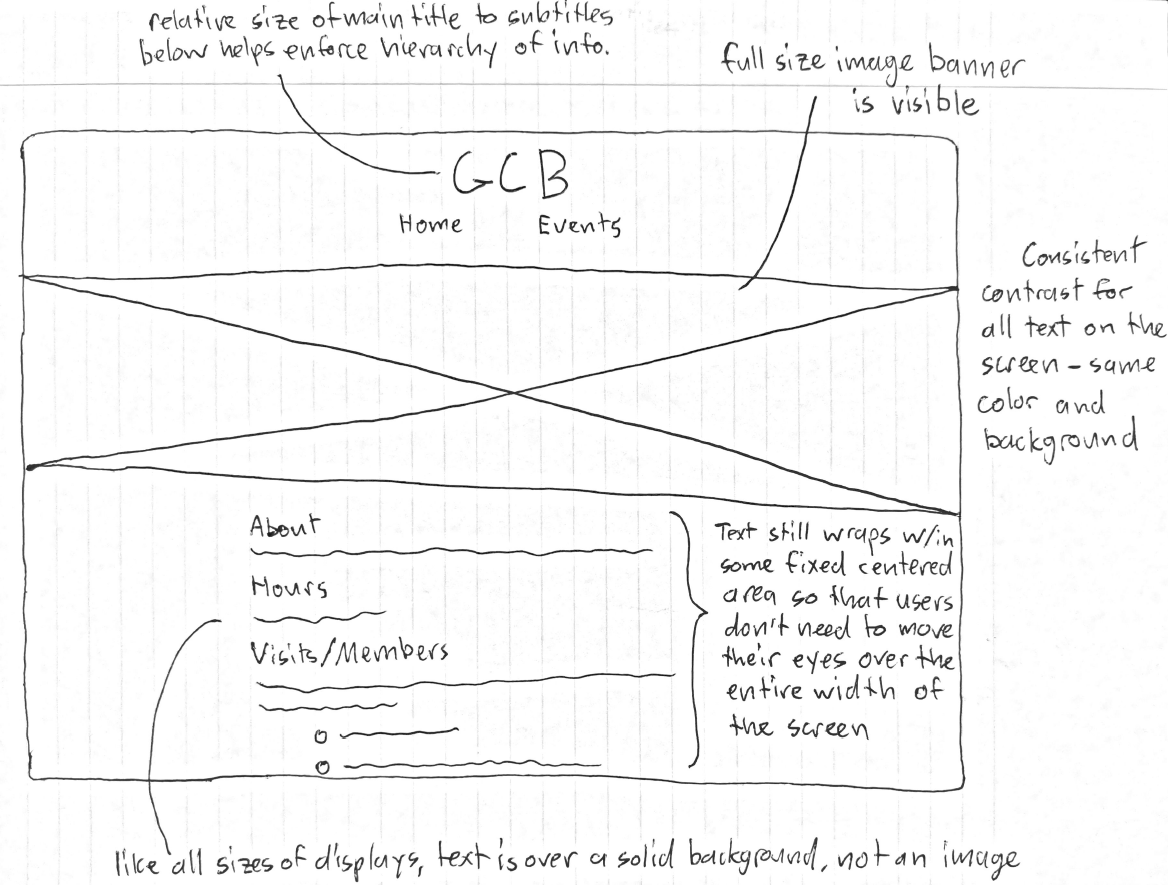 relative size of main title to subtitles
below helps enforce hierarchy of info.
full size image banner
is visible
GCB
Home Events
Consistent
contrast for
all text on the
screen - same
color and
background
About
Hours
Visits/Members
Text still wraps w/in
some fixed centered
area so that users
don't need to move
their eyes over the
entire width of
the screen
like all sizes of displays, text is over a solid background, not an image